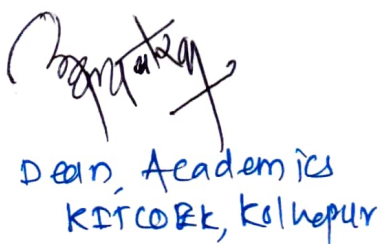 Dean, Academics
KITCOEK, Kolhapur